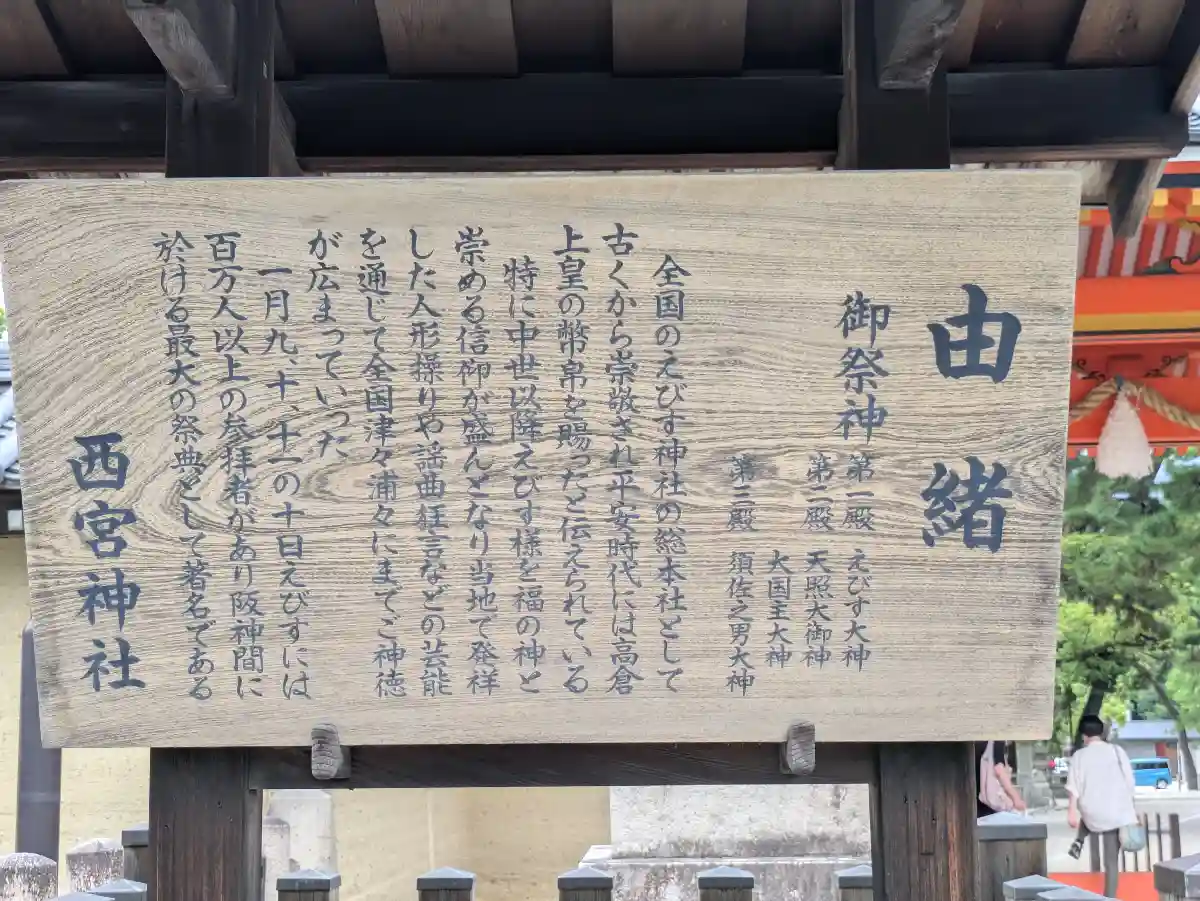 由緒
御祭神 第一殿 えびす大神
第二殿 天照大御神
大国主大神
第三殿 須佐之男大神
全国のえびす神社の総本社として
古くから崇敬され平安時代には高倉
上皇の幣帛を賜ったと伝えられている
特に中世以降えびす様を福の神と
崇める信仰が盛んとなり当地で発祥
した人形操りや謡曲狂言などの芸能
を通じて全国津々浦々にまでご神徳
が広まっていった
一月九、十、十一の十日えびすには
百万人以上の参拝者があり阪神間に
於ける最大の祭典として著名である
西宮神社